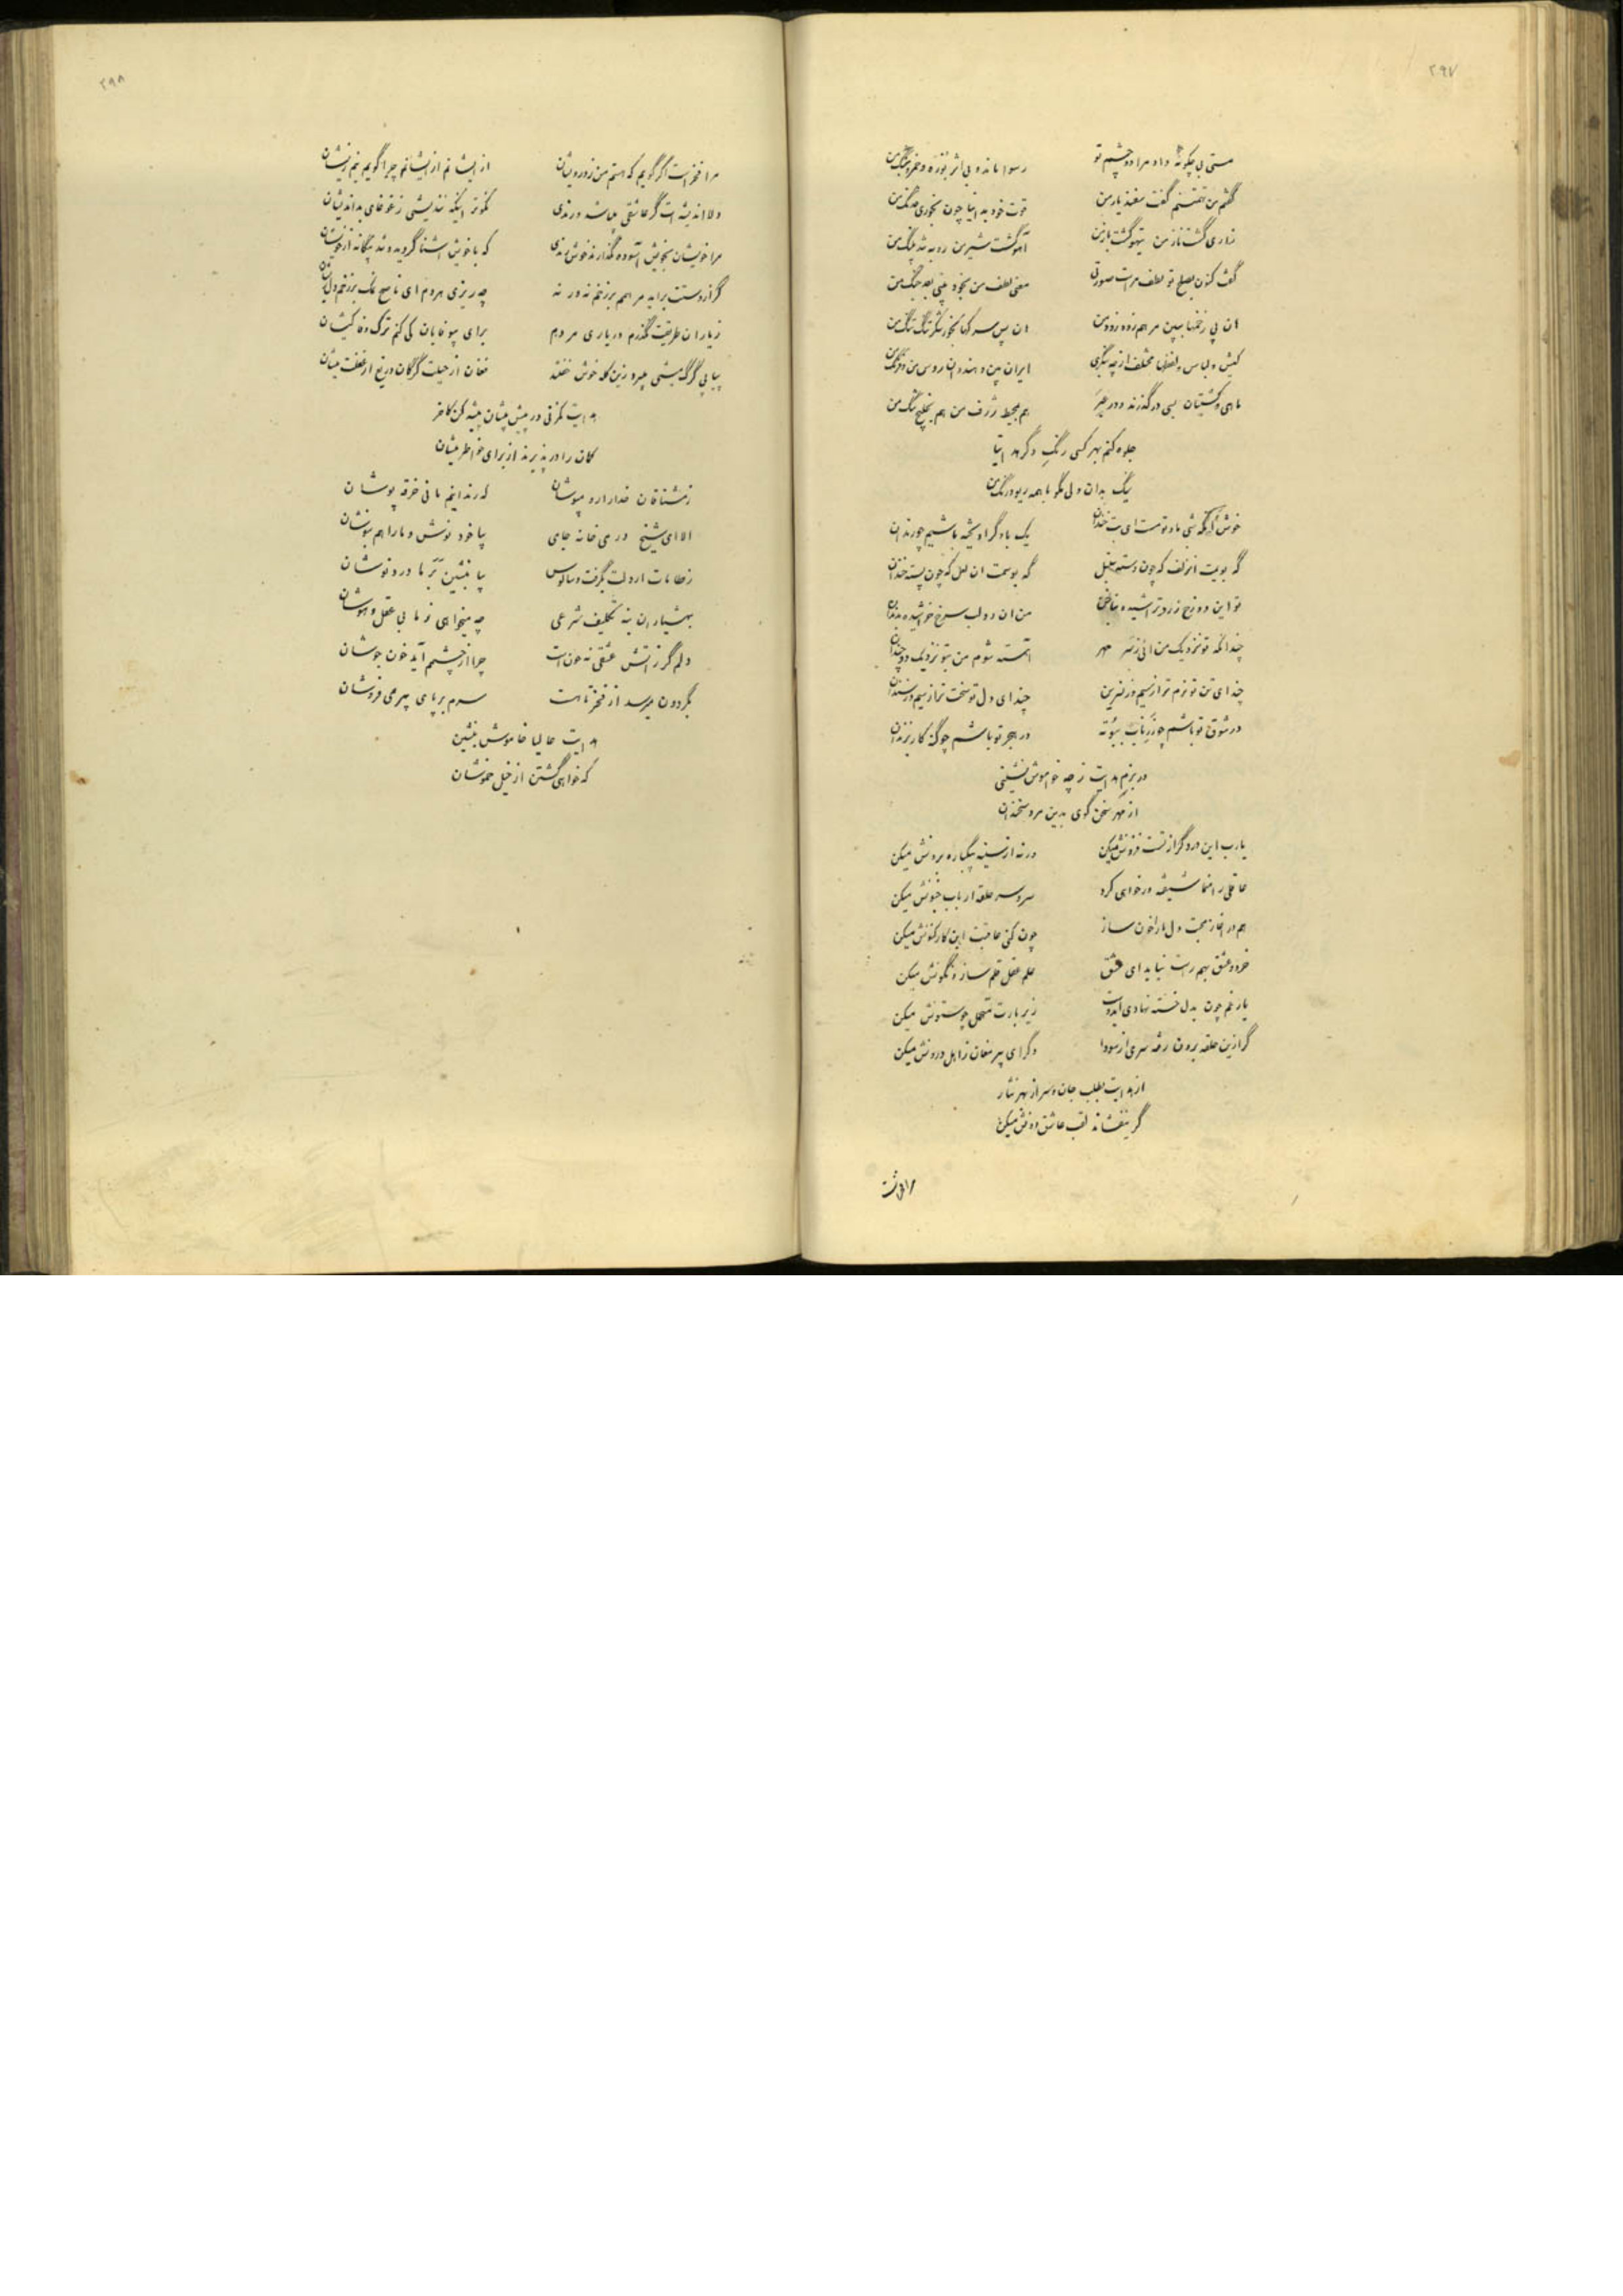 ۲۹۷
مستی بی چگونه داد مرا دو چشم تو رسوا ماند و بی اثر بوزه و خمر و بنگ من
گفتم من گفت بغذ یار من قوت خود بدانیا چون بخوری من
زاری گشت ناز من تیهو گشت باز من آهو گشت شیر من روبه شد پلنگ من
گفت کنون بصلح تو لطف مراست صورتی معنی لطف من بخود بینی بعد جنگ من
ان پی زخمها ببین مرهم زود زود من ان پس سرکها بخور شکر تنگ تنگ من
کیش و لباس و لفظها مختلف از چه بنگری ایران بین و هند و ان روس من و فرنگ من
ماهی و کشتیان بسی در گذرند و در هم محیط ژرف من هم بخلیج تنگ من
جلوه کنم بهر کسی رنگ دگر هدایتا
یک بدان ولی نگو با همه ریو و رنگ من
خوش آنکه شبی ماه و تو مست ای بت خندان یک باد گر اویخته باشیم چو رندان
گه بویت انزلف که چون دسته سنبل گه بوسمت ان لعل که چون پسته خندان
تو این دو زخ زرد تراشیده بناخن من ان دو لب سرخ خراشیده بدندان
چندانکه تو نزدیک من ائی ز سر مهر آهسته شوم من بتو نزدیک دو چندان
چند ای تن تو نرم تر از سیم و ز نسرین چند ای دل تو سخت تر از سیم و ز سندان
در شوق تو باشم چو زر ناب ببوته در هجر تو باشم چو گنه کار بزندان
در بزم هدایت ز چه خاموش نشینی
از مهر سخن گوی بدین مرد سخندان
یارب این درد گر از تست فزونش میکن ورنه از سینه بیکباره برونش میکن
عاقلی را بتماشا شیفته ور خواهی کرد سر و سر حلقه ارباب جنونش میکن
هم در اغاز محبت دل ما را خون ساز چون کنی عاقبت این کار کنونش میکن
خرد و عشق بهم راست نیاید ای عشق علم عقل قلم ساز و نگونش میکن
بار غم چون بدل خسته نهادی ایدوست زیر بارت متحمل چو ستونش میکن
گر ازین حلقه برون رفته سری از سودا دگر ای پیر مغان ز اهل درونش میکن
از هدایت بطلب جان و سر از بهر نثار
گر نیفشاند لقب عاشق دونش میکن
مرا فخر است
۲۹۸
مرا فخر است اگر گویم که هستم من ز درویشان از ایشانم از ایشانم چرا گویم نیم زیشان
دلا اندیشه است گر عاشقی باشد و رندی نکوتر اینکه نندیشی ز غوغای بداندیشان
مرا خویشان بخویش آسوده نگذارند خوش رندی که با خویش اشنا گردید و شد بیگانه از خویشان
گر از دستت براید مرهمی بر زخم نه ورنه چه ریزی هردم ای ناصح نمک بر زخم دلریشان
ز یاران طریقت نگذرم در یاری مردم برای بیوفایان کی کنم ترک وفا کیشان
بیابی گرگ میشی چیره زین گله خوش خفته فغان از حیلت گرگان دریغ از غفلت میشان
هدایت کمزنی در پیش بیشان پیشه کن کاخر
کمان را در پذیرند از برای خاطر بیشان
ز مشتاقان خدا را رو مپوشان که رندانیم ما نی خرقه پوشان
الا ای شیخ در می خانه جامی بیا خود نوش و ما را هم بنوشان
ز طامات ار دلت بگرفت و سالوس بیا بنشین بر ما دردنوشان
بهشیاران بنه تکلیف شرعی چه میخواهی ز ما بی عقل و هوشان
دلم گر ز اتش عشقی نه خون است چرا از چشمم آید خون جوشان
بگردون میرسد از فخر تا هست سرم بر پای پیر می فروشان
هدایت حالیا خاموش بنشین
که خواهی گشتن از خیل خموشان